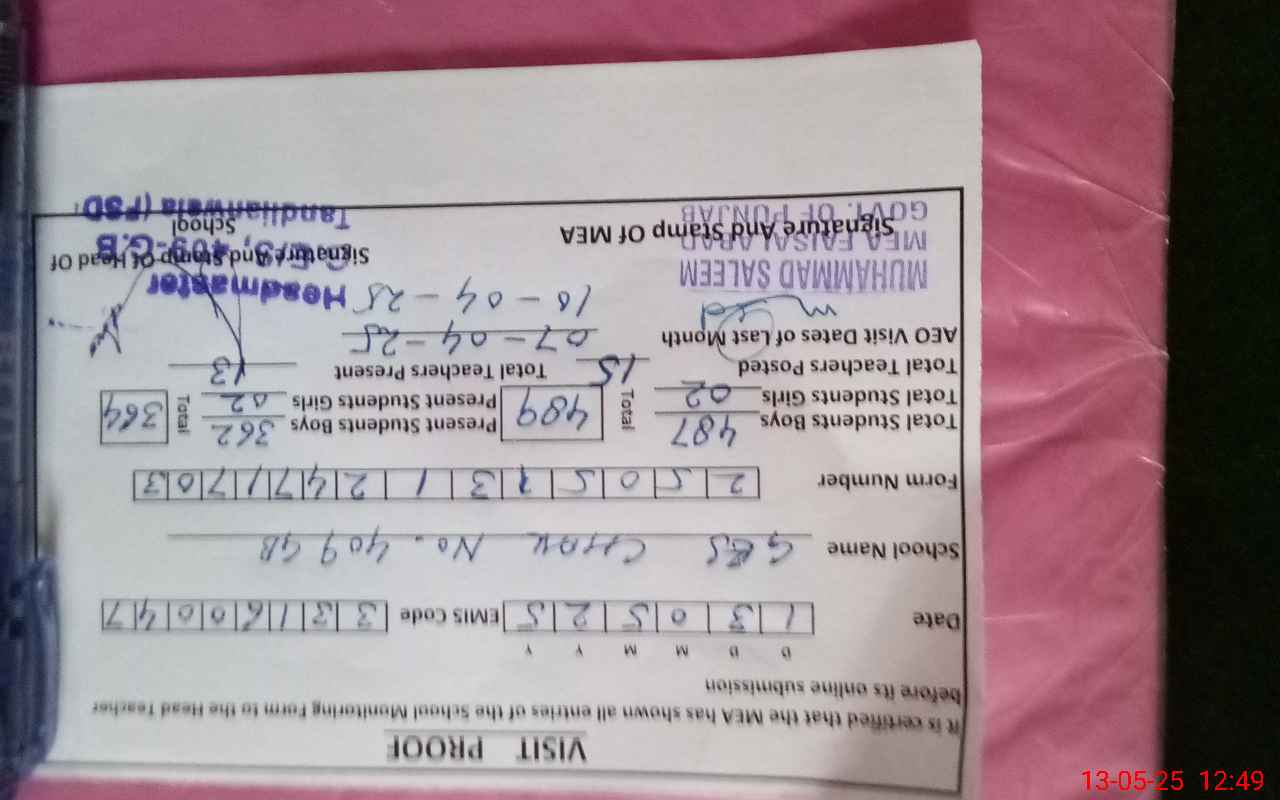 VISIT PROOF
It is certified that the MEA has shown all entries of the School Monitoring Form to the Head Teacher
before its online submission
D D M M Y Y
Date 1 3 0 5 2 5 EMIS Code 3 3 3 1 6 0 0 4 7
School Name GES CHAK No. 409 GB
Form Number 2 5 0 5 1 3 1 2 4 7 1 7 0 3
Total Students Boys 487 Total 489 Present Students Boys 362 Total 364
Total Students Girls 02 Present Students Girls 02
Total Teachers Posted 15 Total Teachers Present 13
AEO Visit Dates of Last Month 07-04-25
10-04-25
MUHAMMAD SALEEM
MEA FAISALABAD
GOVT. OF PUNJAB
Signature And Stamp Of MEA
Headmaster
409-G.B
Tandlianwala (FSD)
Signature And Stamp Of Head Of
School
13-05-25 12:49